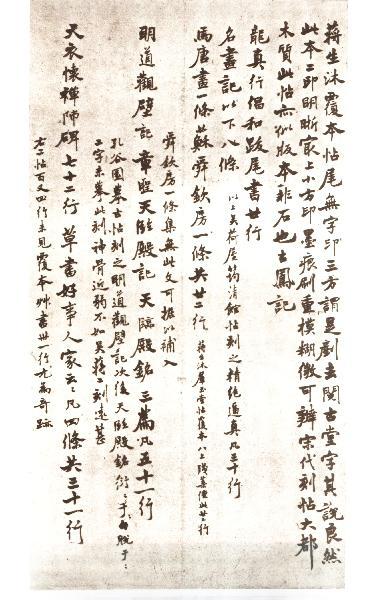 蔣生沐覆本帖尾無字印三方謂是剷去閱古堂字其說良然
此本三印明晰最上小方印墨痕刷重模糊微可辨宋代刻帖大都
木質此帖亦似版本非石也士鳳記
龍真行倡和跋尾書廿行
名畫記以下八條
以上吳荷屋筠清館帖刻之精絕過真凡三十行
馬唐畫一條蘇舜欽房一條共廿二行
舜欽房條集無此文可据以補入
明道觀壁記章臨天臨殿記天臨殿銘三篇凡五十一行
孔谷園摹古帖刻之明道觀壁記次後天臨殿銘
二字未摹此刻神骨近弱不如吳蔣二刻遠甚
天衣懷禪師碑七十二行草書好事人家云云凡四條共三十一行
右二帖百又四行未見覆本艸書卅一行尤為奇跡